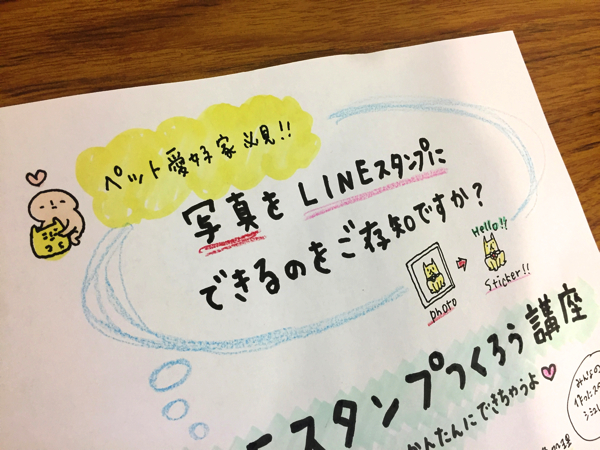 ペット愛好家必見!!
写真をLINEスタンプに
できるのをご存知ですか?
Hello!!
photo
Sticker!!
Eスタンプつくろう講座
かんたんにできちゃうよ
みんなの
作ったスタ